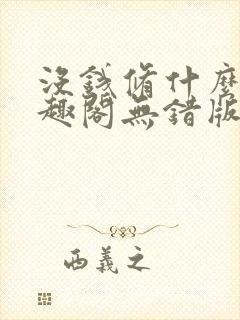 沒錢脩什麼
趣閣無錯版
西義之